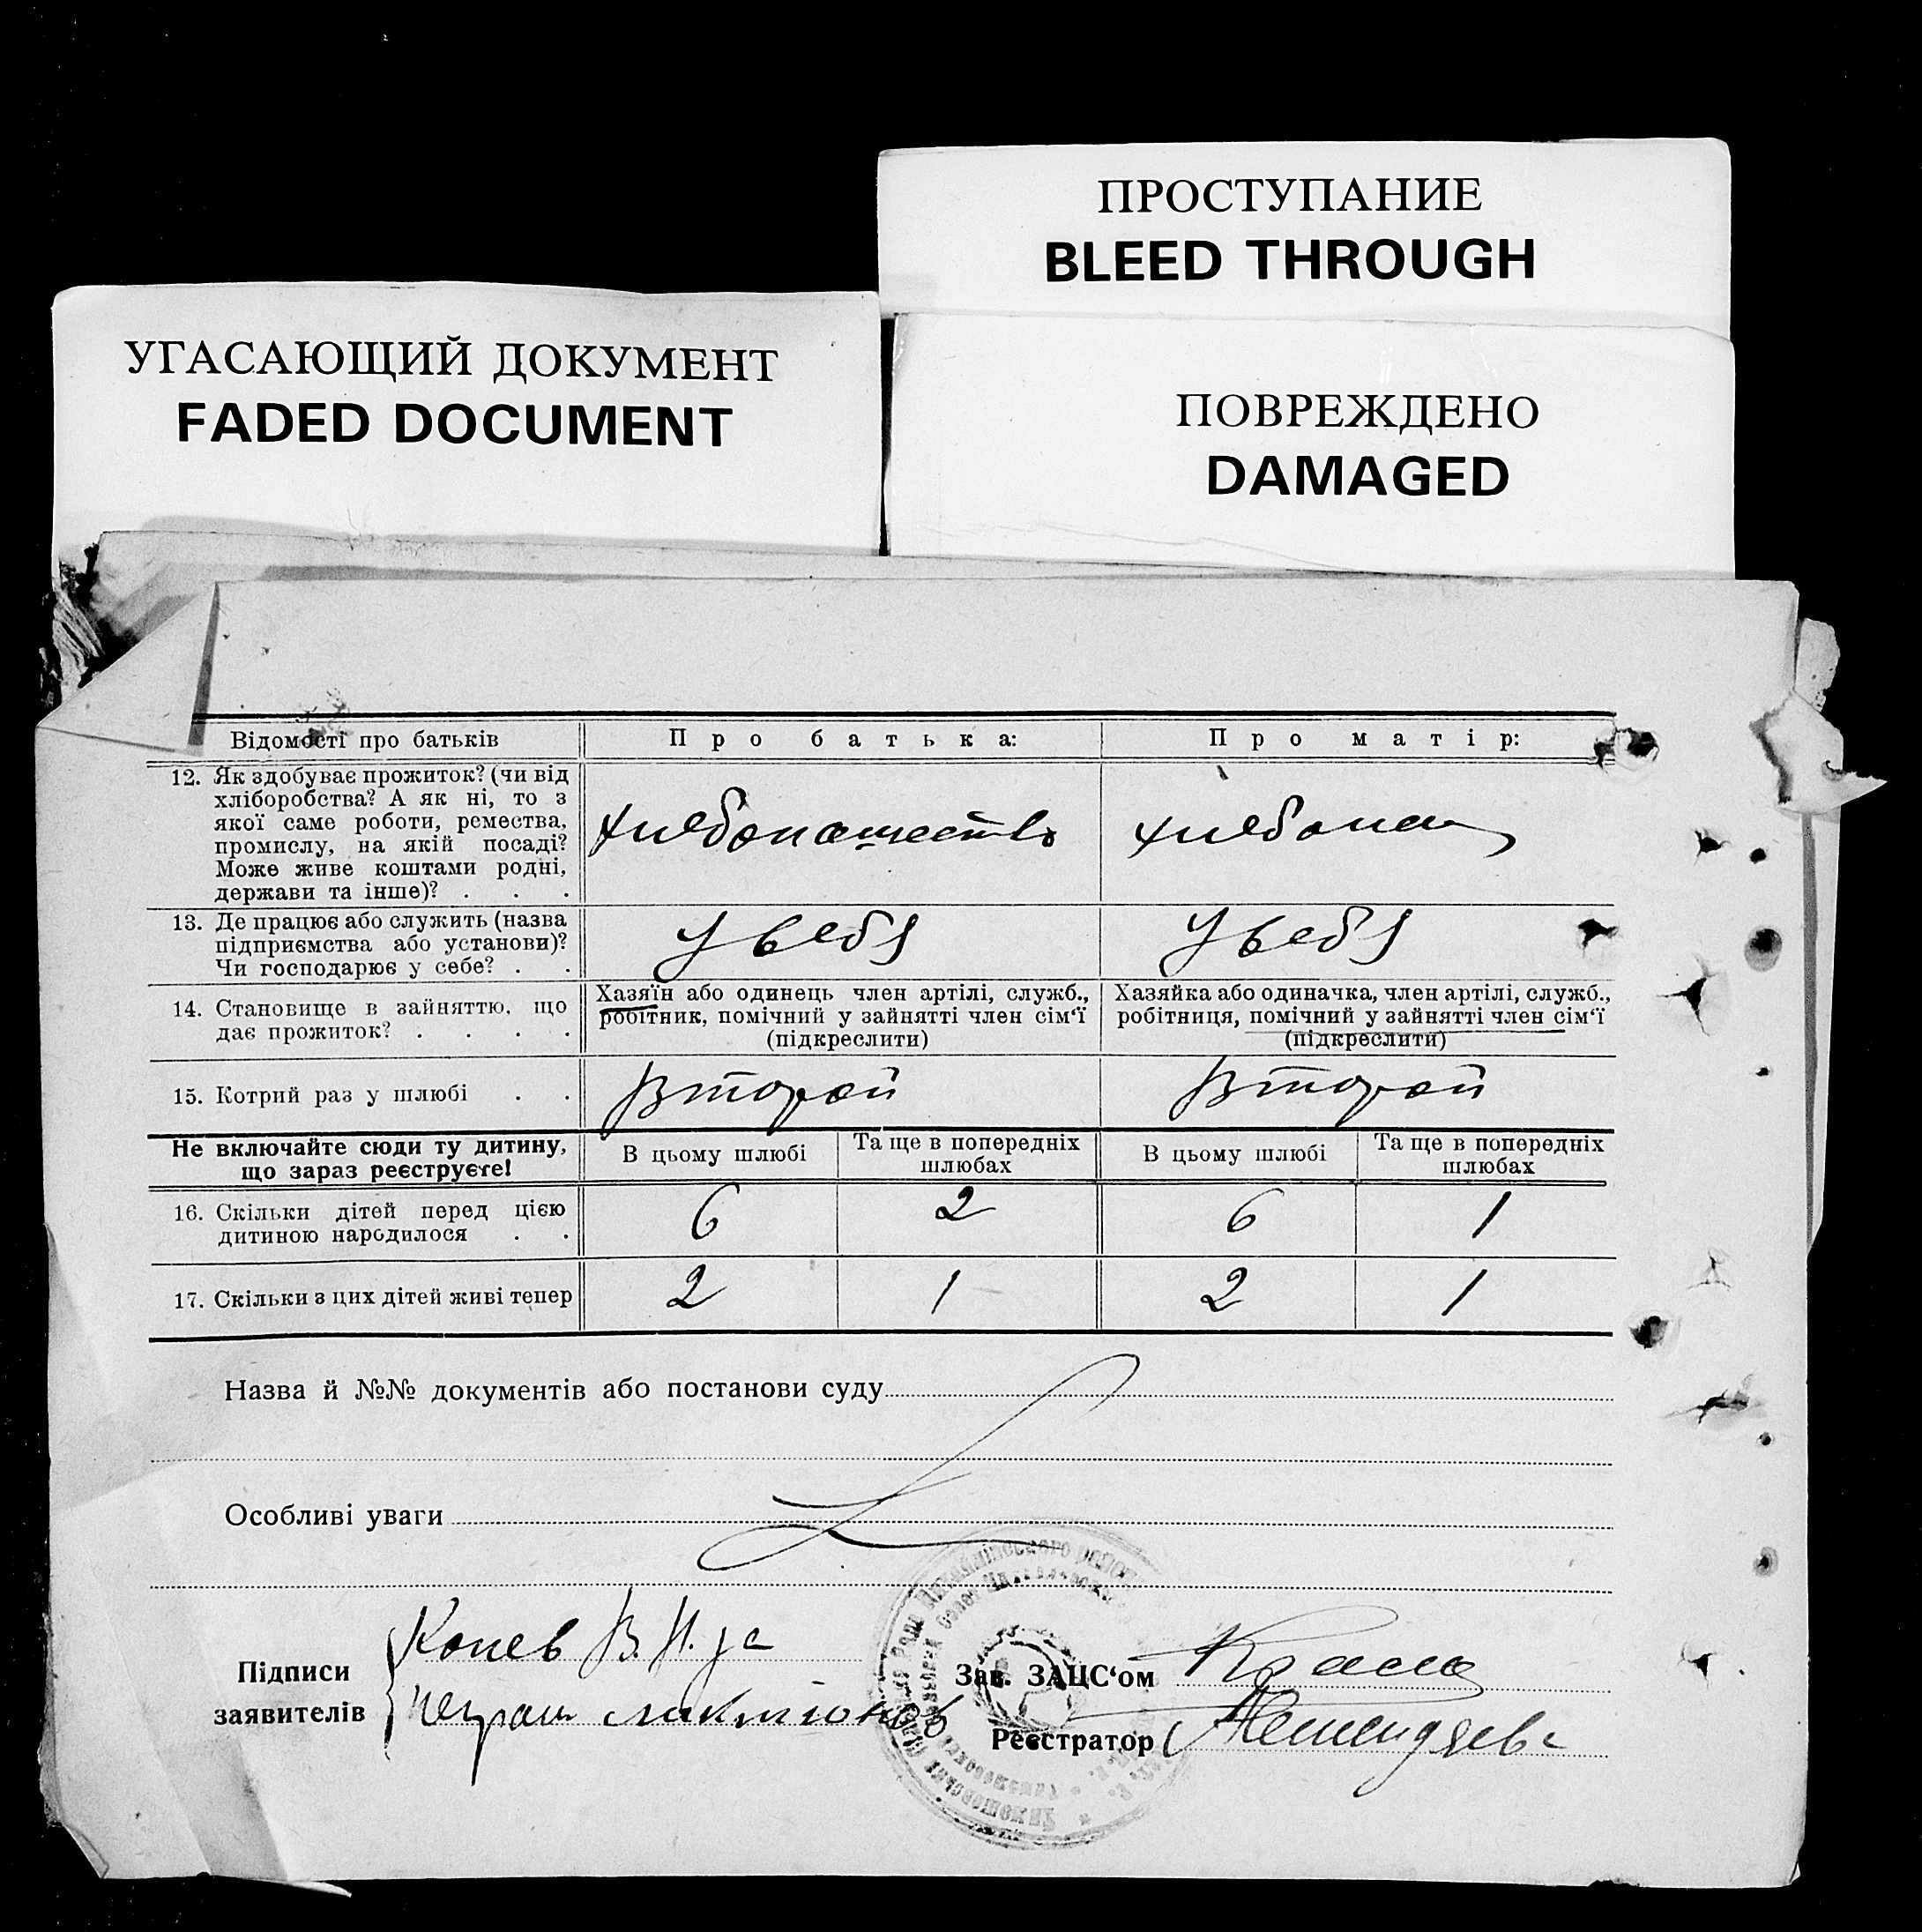 ПРОСТУПАНИЕ
BLEED THROUGH
УГАСАЮЩИЙ ДОКУМЕНТ
FADED DOCUMENT
ПОВРЕЖДЕНО
DAMAGED
Відомості про батьків
Про батька:
Про матір:
12. Як здобуває прожиток? (чи від
хліборобства? А як ні, то з
якої саме роботи, ремества,
промислу, на якій посаді?
Може живе коштами родні,
держави та інше)? . . .
хлебопашество
хлебопаш
13. Де працює або служить (назва
підприємства або установи)?
Чи господарює у себе? . .
У себя
У себя
14. Становище в зайняттю, що
дає прожиток? . . . .
Хазяїн або одинець член артілі, служб.,
робітник, помічний у зайнятті член сім'ї
(підкреслити)
Хазяйка або одиначка, член артілі, служб.,
робітниця, помічний у зайнятті член сім'ї
(підкреслити)
15. Котрий раз у шлюбі . .
Второй
Второй
Не включайте сюди ту дитину,
що зараз реєструєте!
В цьому шлюбі
Та ще в попередніх
шлюбах
В цьому шлюбі
Та ще в попередніх
шлюбах
16. Скільки дітей перед цією
дитиною народилося . .
6
2
6
1
17. Скільки з цих дітей живі тепер
2
1
2
1
Назва й №№ документів або постанови суду
Особливі уваги
Підписи
заявителів
Копев В. Н.
Зав. ЗАЦС'ом
Реєстратор